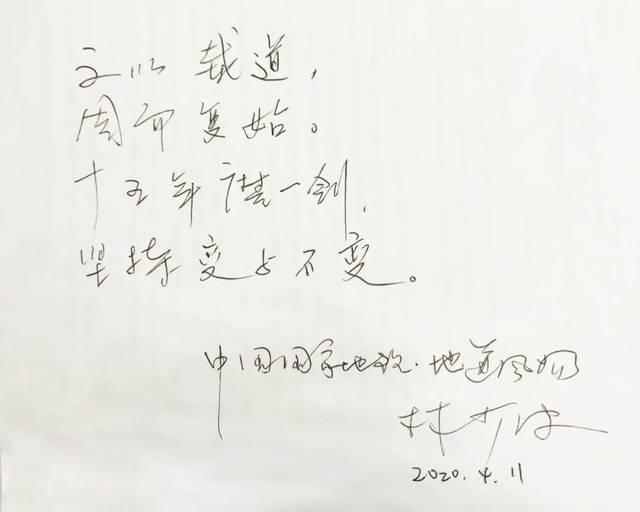 文以载道，
周而复始。
十五年磨一剑，
坚持变与不变。
中国国家地理·地道风物
林少波
2020.4.11